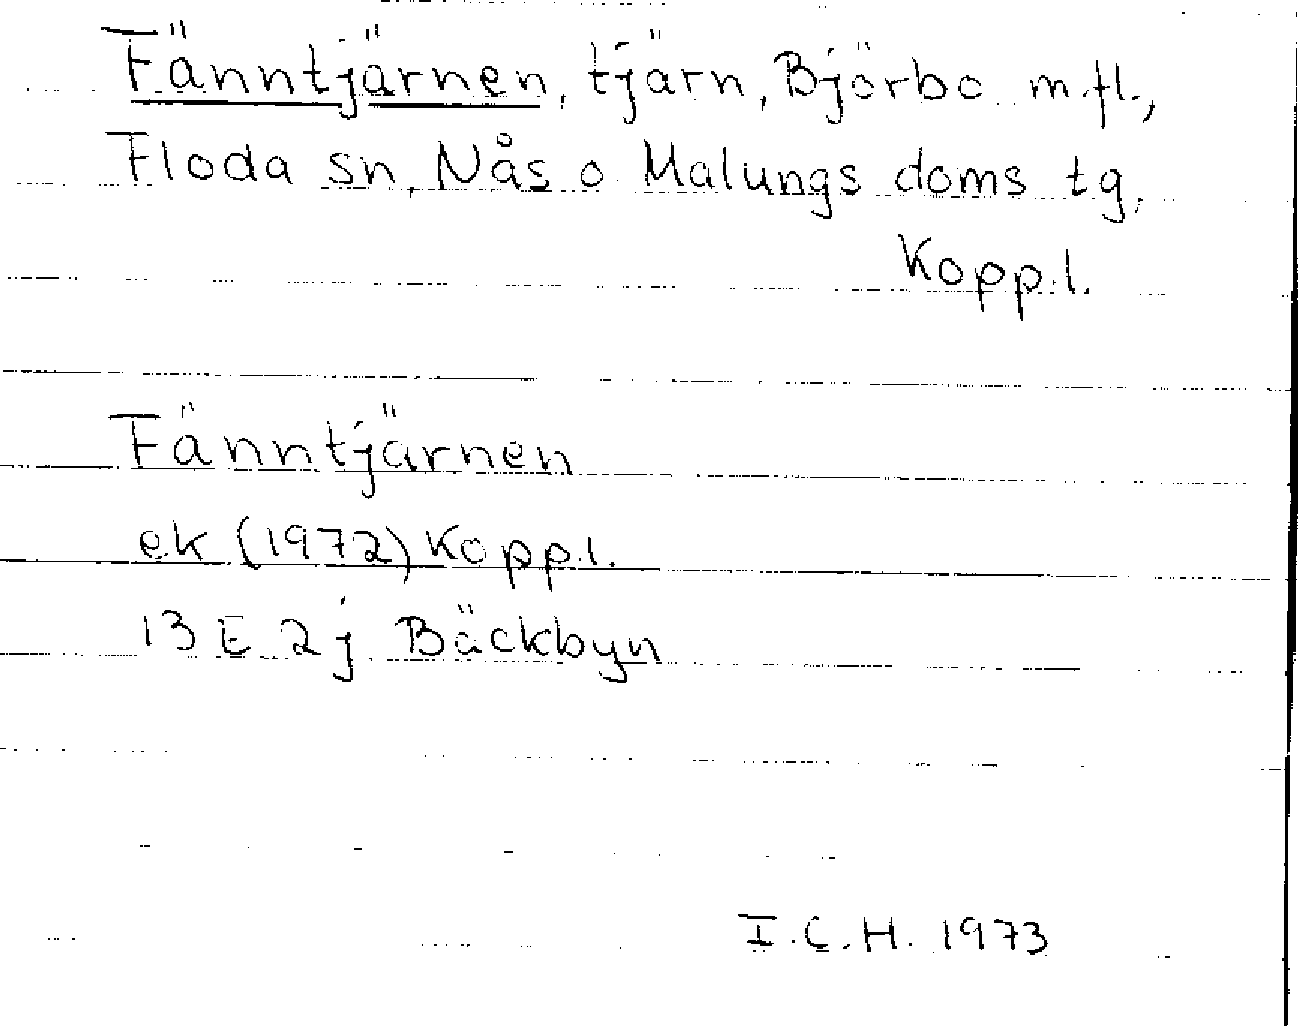 Fänntjärnen, tjärn, Björbo m.fl.,
Floda sn, Nås o Malungs doms tg,
Kopp.l.
Fänntjärnen
ek (1972) Kopp.l.
13 E 2j Bäckbyn
I.C.H. 1973